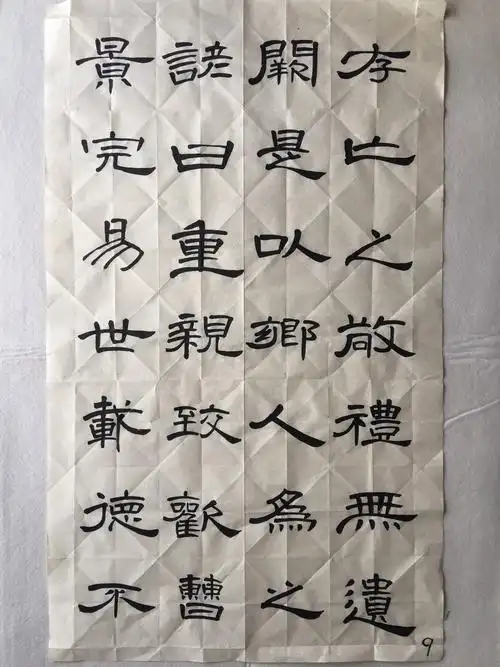 存亡之敬禮無遺
闕是以鄉人為之
諺曰重親致歡曹
景完易世載德不
9